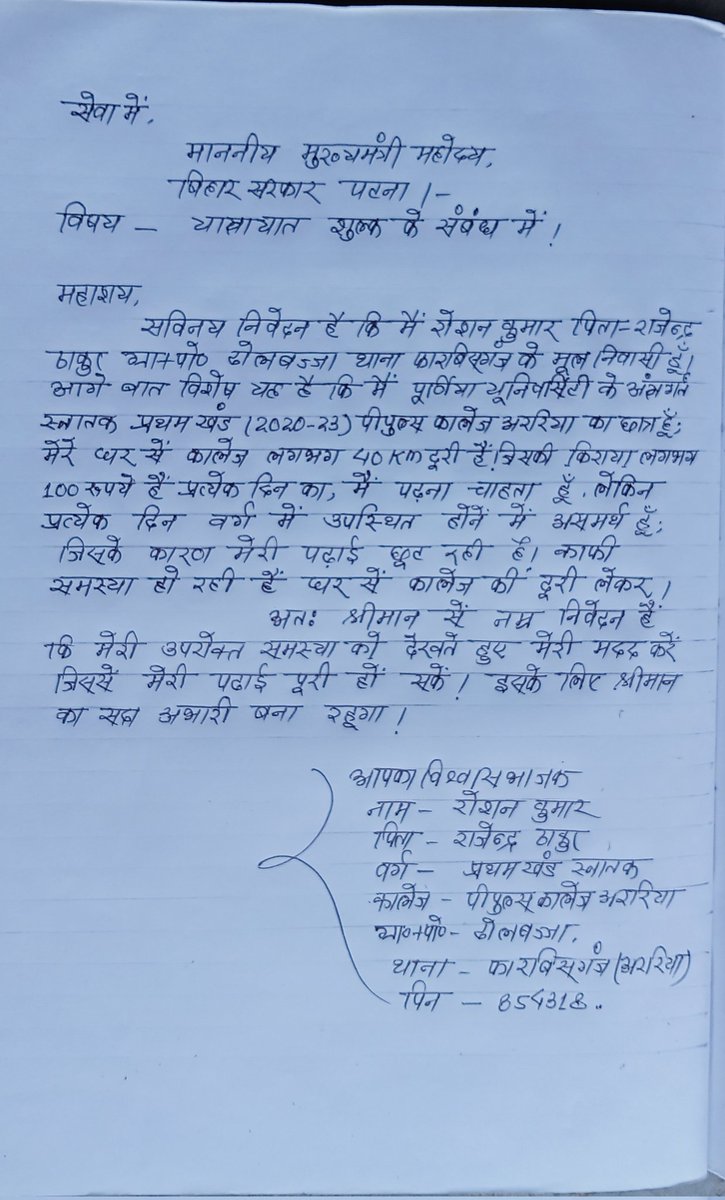 सेवा में,
माननीय मुख्यमंत्री महोदय,
बिहार सरकार पटना।-
विषय - यात्रायात शुल्क के संबंध में!
महाशय,
सविनय निवेदन है कि मैं रोशन कुमार पिता-राजेन्द्र
ठाकुर ग्रा०+पो० ढोलबज्जा थाना फारबिसगंज के मूल निवासी हूँ।
आगे बात विशेष यह है कि मैं पूर्णिया यूनिवर्सिटी के अंतर्गत
स्नातक प्रथम खंड (2020-23) पीपुल्स कालेज अररिया का छात्र हूँ;
मेरे घर सें कालेज लगभग 40 Km दूरी हैं। जिसकी किराया लगभग
100 रूपये हैं प्रत्येक दिन का, मैं पढ़ना चाहता हूँ, लेकिन
प्रत्येक दिन वर्ग में उपस्थित होनें में असमर्थ हूँ;
जिसके कारण मेरी पढ़ाई छूट रही है। काफी
समस्या हो रही हैं घर सें कालेज कीं दूरी लेकर।
अतः श्रीमान सें नम्र निवेदन हैं
कि मेरी उपरोक्त समस्या को देखते हुए मेरी मदद करें
जिससें मेरी पढाई पूरी हों सकें! इसके लिए श्रीमान
का सदा अभारी बना रहूगा!
आपका विश्वासभाजक
नाम - रोशन कुमार
पिता - राजेन्द्र ठाकुर
वर्ग - प्रथम खंड स्नातक
कालेज - पीपुल्स कालेज अररिया
ग्रा०+पो०- ढोलबज्जा.
थाना - फारबिसगंज (अररिया)
पिन - 854318..